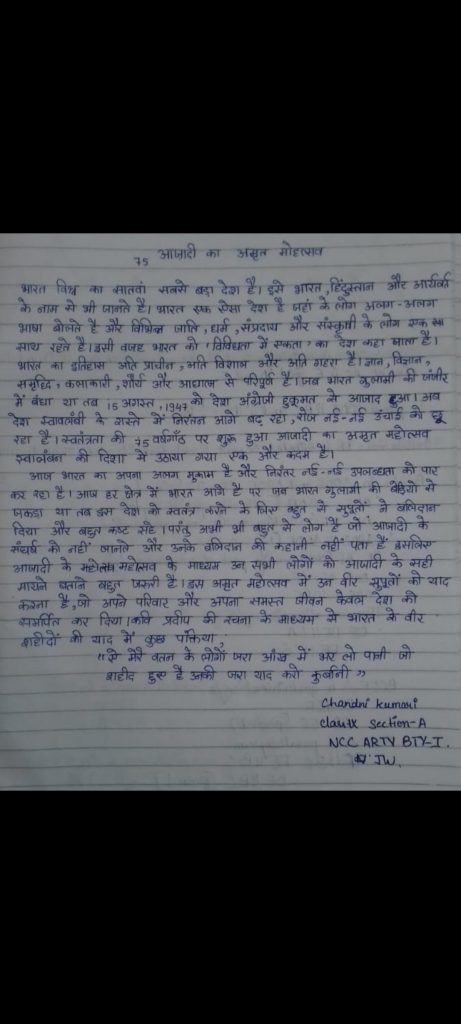 75 आजादी का अमृत मोहत्सव
भारत विश्व का सातवां सबसे बड़ा देश है। इसे भारत, हिंदुस्तान और आर्यावर्त
के नाम से भी जानते है। भारत एक ऐसा देश है जहां के लोग अलग-अलग
भाषा बोलते है और विभिन्न जाति, धर्म, संप्रदाय और संस्कृती के लोग एक
साथ रहते है। इसी वजह भारत को 'विविधता में एकता' का देश कहा जाता है।
भारत का इतिहास अति प्राचीन, अति विशाल और अति गहरा है। ज्ञान, विज्ञान,
समृद्धि, कलाकारी, शौर्य और आध्यात्म से परिपूर्ण है। जब भारत गुलामी की जंजीर
में बंधा था तब 15 अगस्त, 1947 को देश अंग्रेजी हुकूमत से आजाद हुआ। अब
देश स्वावलंबी के रास्ते में निरंतन आगे बढ़ रहा, रोज नई-नई उंचाई को छू
रहा है। स्वतंत्रता की 75 वर्षगाँठ पर शुरू हुआ आजादी का अमृत महोत्सव
स्वालंबन की दिशा में उठाया गया एक और कदम है।
आज भारत का अपना अलग मुकाम है और निरंतर नई-नई उपलब्धता को पार
कर रहा है। आज हर क्षेत्र में भारत आगे है पर जब भारत गुलामी की बेड़ियो से
जकड़ा था तब इस देश को स्वतंत्र करने के लिए बहुत से सुपूतों ने बलिदान
दिया और बहुत कष्ट सहे। परंतु अभी भी बहुत से लोग है जो आजादी के
संघर्ष को नहीं जानते और उनके बलिदान की कहानी नहीं पता है इसलिए
आजादी के महोत्सव के माध्यम उन सभी लोगों को आजादी के सही
मायने बताने बहुत जरुरी है। इस अमृत महोत्सव में उन वीर सुपूतों को याद
करना है, जो अपने परिवार और अपना समस्त जीवन केवल देश को
समर्पित कर दिया। कवि प्रदीप की रचना के माध्यम से भारत के वीर
शहीदों की याद में कुछ पंक्तिया,
"ऐ मेरे वतन के लोगों जरा आँख में भर लो पानी जो
शहीद हुए है उनकी जरा याद करो कुर्बानी"
Chandni Kumari
Section-A
NCC ARTY BTY-I.
JW.